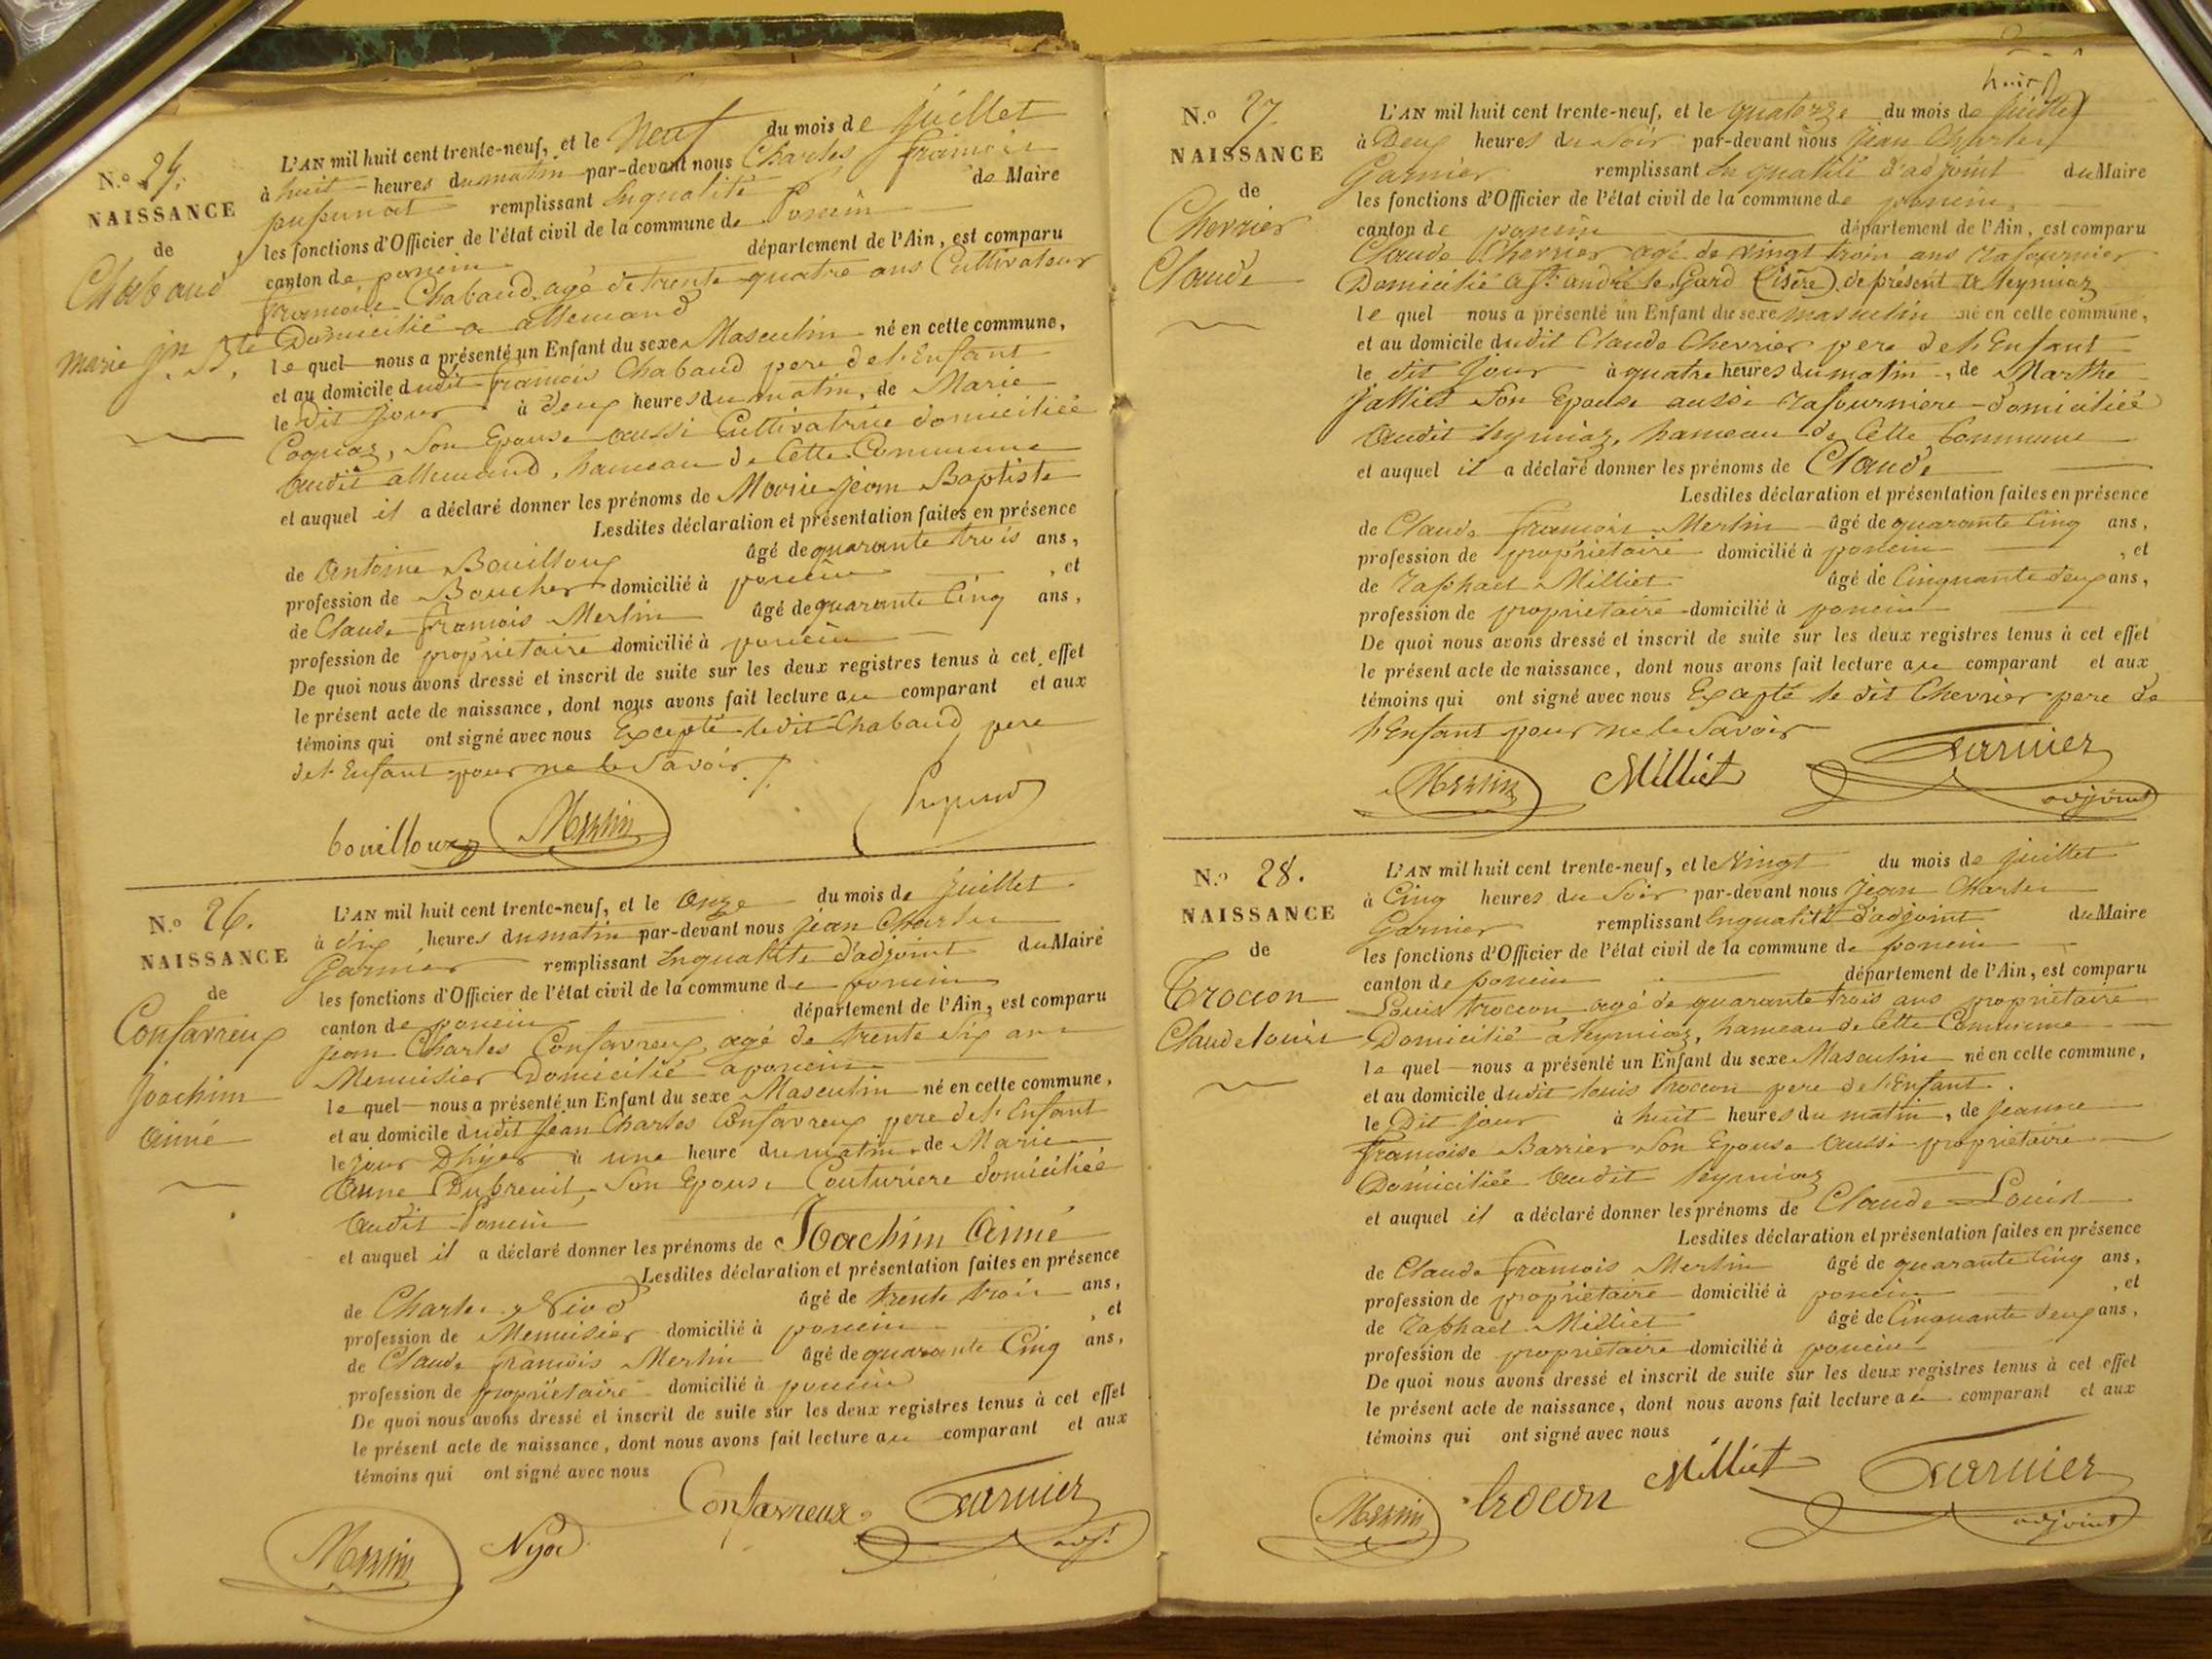 N.º 25.
NAISSANCE
de
Chabaud
Marie Jn Bte
L'AN mil huit cent trente-neuf, et le Neuf du mois de juillet
à huit heures du matin par-devant nous Charles François
remplissant En qualité de Maire
les fonctions d'Officier de l'état civil de la commune de Poncin
canton de poncin département de l'Ain, est comparu
François Chabaud, agé de trente quatre ans Cultivateur
Domicilié a allemand
le quel nous a présenté un Enfant du sexe Masculin né en cette commune,
et au domicile dudit françois Chabaud pere de l'Enfant
le Dit jour à deux heures du matin, de Marie
Cognaz, Son Epouse aussi Cultivatrice domiciliée
audit allemand, hameau de Cette Commune
et auquel il a déclaré donner les prénoms de Marie jean Baptiste
Lesdites déclaration et présentation faites en présence
de Antoine Bouilloux âgé de quarante trois ans,
profession de Boucher domicilié à poncin , et
de Claude François Merlin âgé de quarante Cinq ans,
profession de propriétaire domicilié à poncin
De quoi nous avons dressé et inscrit de suite sur les deux registres tenus à cet effet
le présent acte de naissance, dont nous avons fait lecture au comparant et aux
témoins qui ont signé avec nous Excepté ledit Chabaud pere
de l'Enfant pour ne le Savoir /.
bouilloux Merlin
N.º 26.
NAISSANCE
de
Confavreux
Joachim
aimé
L'AN mil huit cent trente-neuf, et le Onze du mois de juillet
à dix heures du matin par-devant nous Jean Charles
Garnier remplissant En qualité d'adjoint du Maire
les fonctions d'Officier de l'état civil de la commune de poncin
canton de poncin département de l'Ain, est comparu
jean Charles Confavreux, agé de trente Six ans
Menuisier Domicilié a poncin
le quel nous a présenté un Enfant du sexe Masculin né en cette commune,
et au domicile dudit Jean Charles Confavreux pere de l'Enfant
le jour D'hyer à une heure du matin, de Marie
Anne Dubreuil, Son Epouse Couturiere domiciliée
audit Poncin
et auquel il a déclaré donner les prénoms de Joachim Aimé
Lesdites déclaration et présentation faites en présence
de Charles Nivo âgé de trente trois ans,
profession de Menuisier domicilié à poncin , et
de Claude François Merlin âgé de quarante Cinq ans,
profession de propriétaire domicilié à poncin
De quoi nous avons dressé et inscrit de suite sur les deux registres tenus à cet effet
le présent acte de naissance, dont nous avons fait lecture au comparant et aux
témoins qui ont signé avec nous
Confavreux Garnier
Merlin adj.
huit
N.º 27.
NAISSANCE
de
Chevrier
Claude
L'AN mil huit cent trente-neuf, et le quatorze du mois de juillet
à Deux heures du Soir par-devant nous Jean Charles
Garnier remplissant En qualité d'adjoint du Maire
les fonctions d'Officier de l'état civil de la commune de poncin,
canton de poncin département de l'Ain, est comparu
Claude Chevrier agé de vingt trois ans rafournier
Domicilié a St. andré le Gard (isère) de présent a leymiaz
le quel nous a présenté un Enfant du sexe masculin né en cette commune,
et au domicile dudit Claude Chevrier pere de l'Enfant
le dit jour à quatre heures du matin, de Marthe
jalliet Son Epouse aussi rafourniere domiciliée
audit leymiaz, hameau de Cette Commune
et auquel il a déclaré donner les prénoms de Claude
Lesdites déclaration et présentation faites en présence
de Claude François Merlin âgé de quarante Cinq ans,
profession de propriétaire domicilié à poncin , et
de raphael Milliet âgé de Cinquante deux ans,
profession de propriétaire domicilié à poncin
De quoi nous avons dressé et inscrit de suite sur les deux registres tenus à cet effet
le présent acte de naissance, dont nous avons fait lecture au comparant et aux
témoins qui ont signé avec nous Excepté le dit Chevrier pere de
l'Enfant pour ne le Savoir
Merlin Milliet Garnier
adjoint
N.º 28.
NAISSANCE
de
Trocon
Claude louis
L'AN mil huit cent trente-neuf, et le Vingt du mois de juillet
à Cinq heures du Soir par-devant nous Jean Charles
Garnier remplissant En qualité d'adjoint du Maire
les fonctions d'Officier de l'état civil de la commune de poncin
canton de poncin département de l'Ain, est comparu
Louis trocon agé de quarante trois ans propriétaire
Domicilié a leymiaz, hameau de Cette Commune
le quel nous a présenté un Enfant du sexe Masculin né en cette commune,
et au domicile dudit louis trocon pere de l'Enfant.
le Dit jour à huit heures du matin, de jeanne
françoise Barrier Son Epouse aussi propriétaire
Domiciliée audit leymiaz
et auquel il a déclaré donner les prénoms de Claude Louis
Lesdites déclaration et présentation faites en présence
de Claude François Merlin âgé de quarante Cinq ans,
profession de propriétaire domicilié à poncin , et
de raphael Milliet âgé de Cinquante deux ans,
profession de propriétaire domicilié à poncin
De quoi nous avons dressé et inscrit de suite sur les deux registres tenus à cet effet
le présent acte de naissance, dont nous avons fait lecture au comparant et aux
témoins qui ont signé avec nous
Merlin trocon Milliet Garnier
adjoint